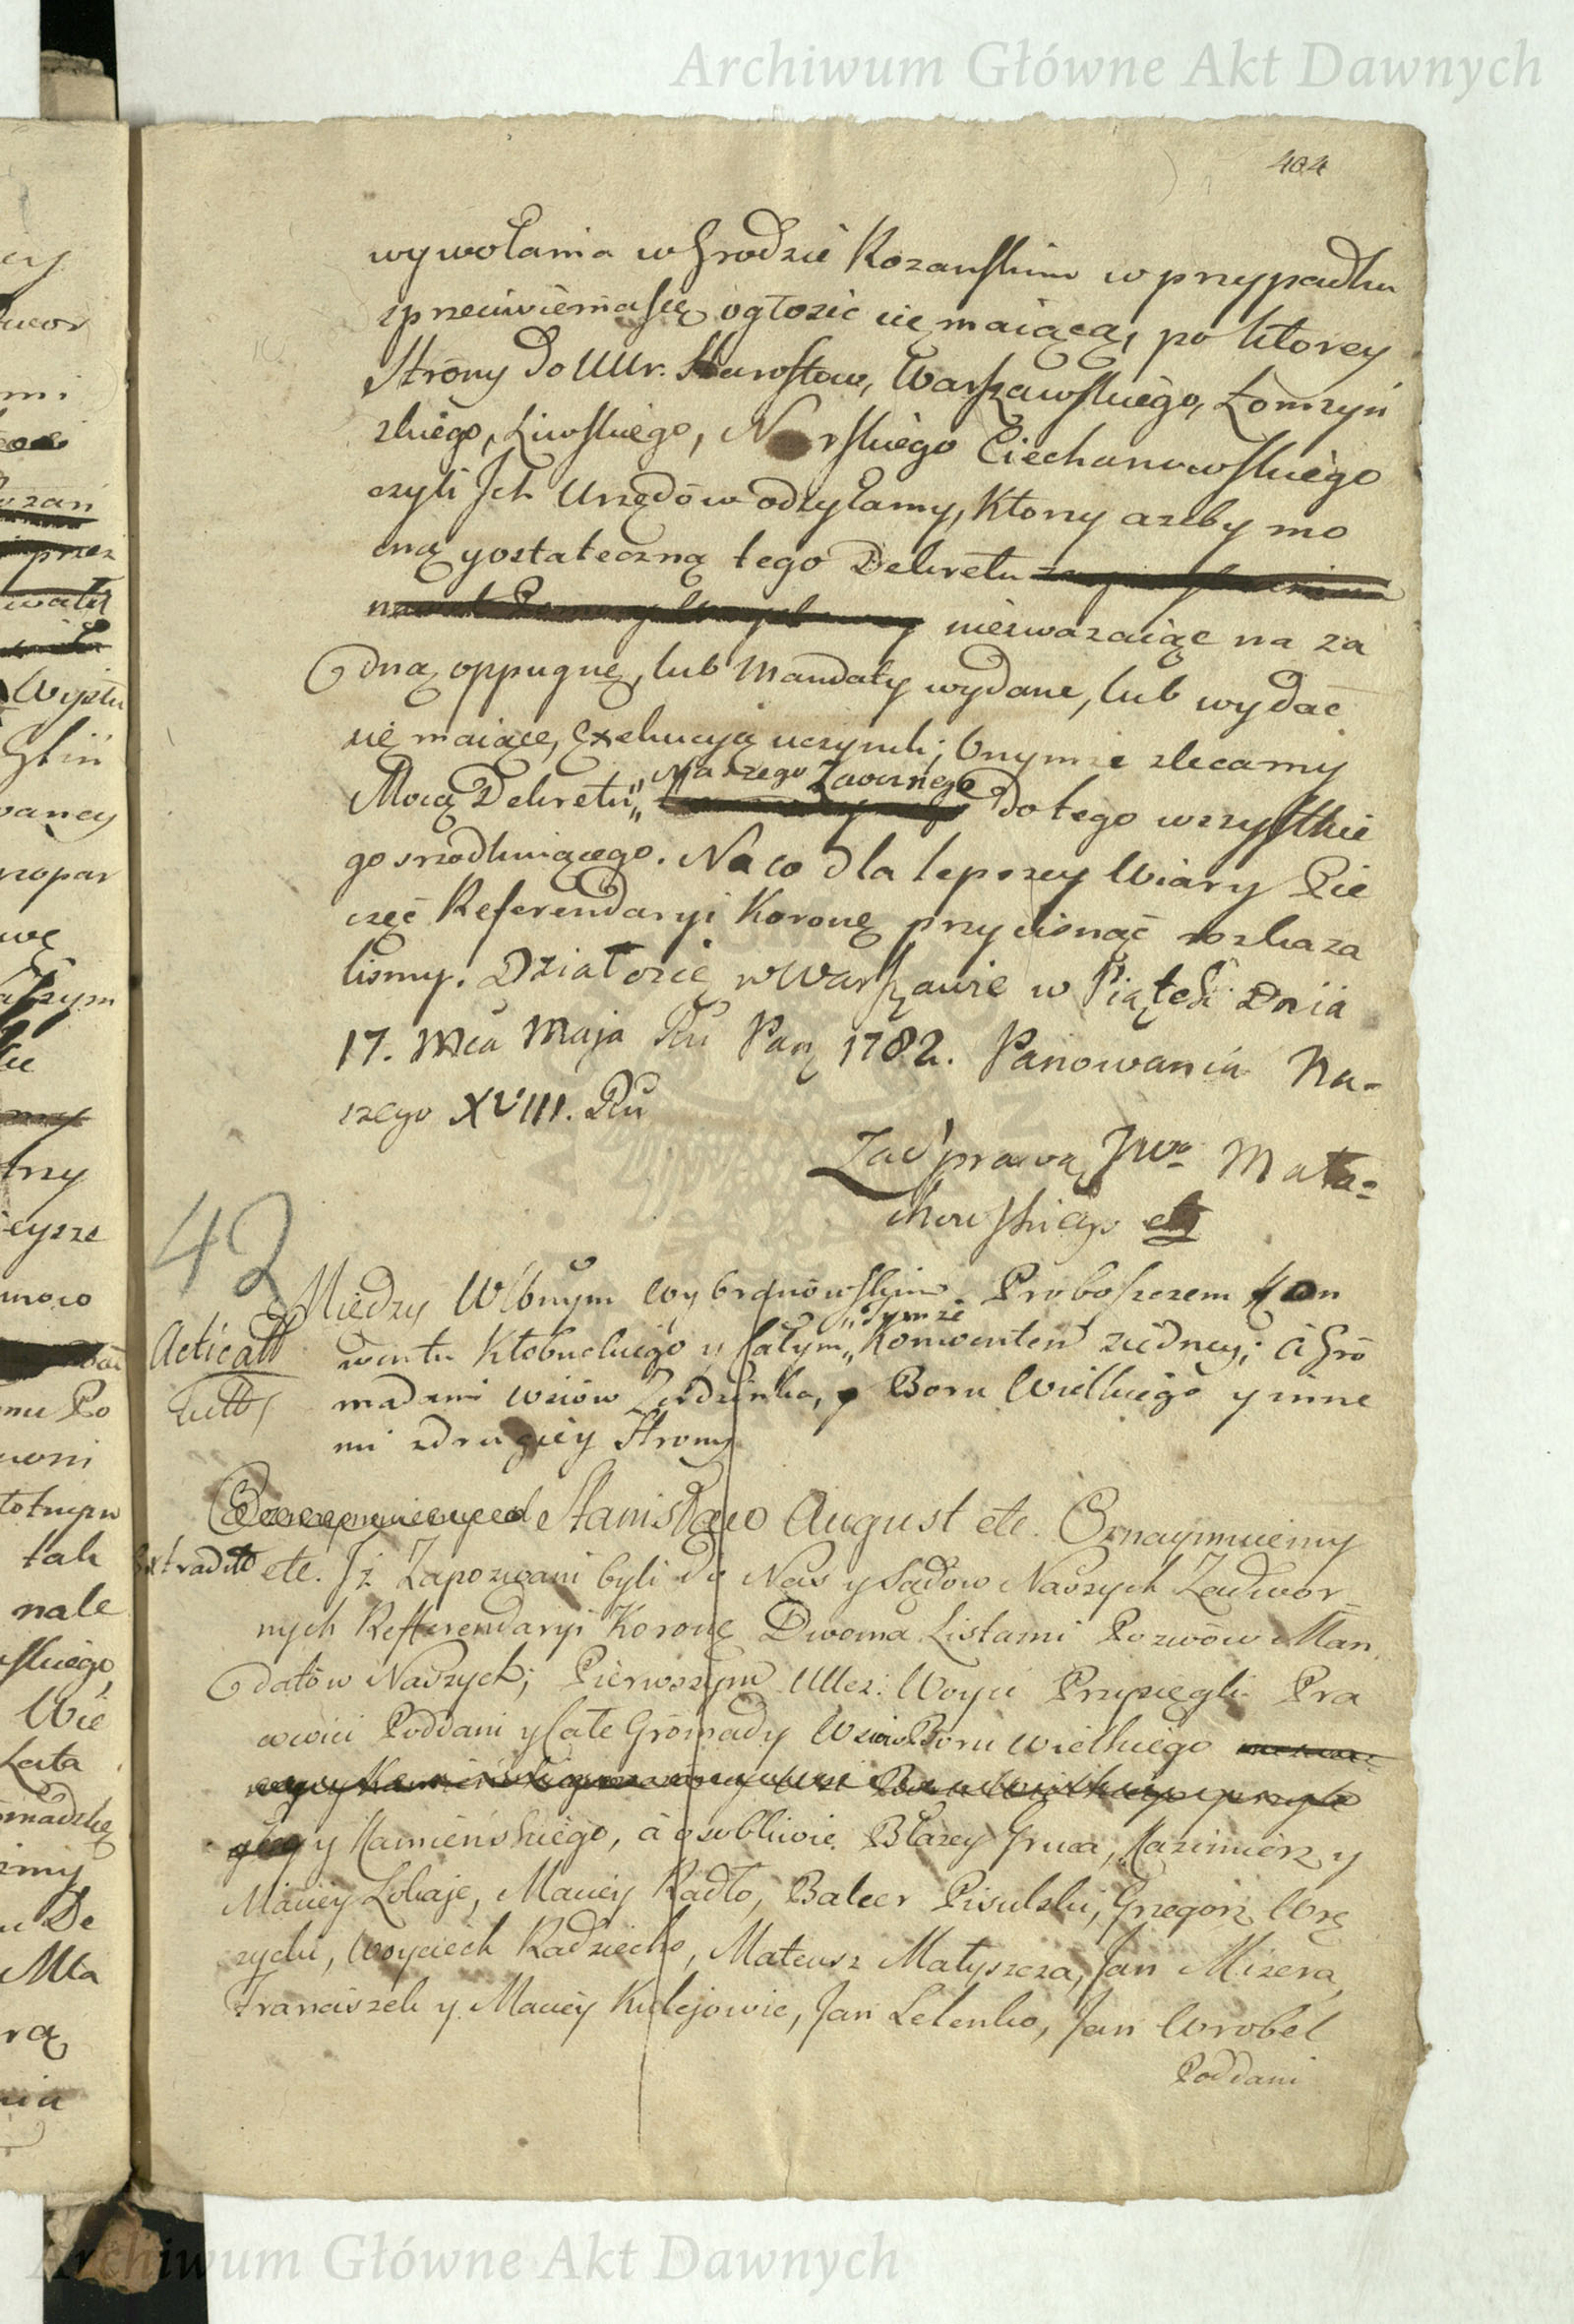 Archiwum Główne Akt Dawnych
404
wywołania w Grodzie Rozanskim w przypadku
zprzeciwięnia się ogłosic się maiącą, po ktorey
Strony do UUr. Starostow, Warszawskiego, Łomzyń
skiego, Liwskiego, Ciechanowskiego
czyli Jch Urzędów odsyłamy, Ktorzy azeby mo
cną y ostateczną tego Dekretu
niezwazaiąc na za
dną oppugnę, lub Mandaty wydane, lub wydać
się maiące, Exekucyą uczynili; Onymze zlecamy
Naszego Zaocznego
Mocą Dekretu „ do tego wszystkie
go srzodkuiącego. Na co dla lepszey Wiary Pie
częć Referendaryi Koronę przycisnąć rozkaza
lismy. Działo się w Warszawie w Piątek Dnia
17. Mca Maja Ru Pań 1782. Panowania Na-
szego XVIII. Ru
Za Sprawą JWo Mała-
chowskiego etc
42
Między Wbnym Wybranowskim Proboszczem Kon
„tymze
Acticatt
wentu Kłobuckiego y całym „ Konwentem ziedney; à Gro
madami Wsiów Zadzinka, y Boru Wielkiego y inne
mi zdrugiey Strony
Stanisław August etc. Oznaymuiemy
Extradit etc. Jż Zapozwani byli do Nas y Sądow Naszych Zadwor-
nych Refferendaryi Koroñę Dwoma Listami Pozwów Man
datów Naszych; Pierwszym UUcz: Woyci Przysięgli Pra
cowici Poddani y całe Gromady Wsiow Boru Wielkiego
y Kamieńskiego, à osobliwie Błazey Gruca, Kazimierz y
Maciey Lokaje, Maciey Radło, Balcer Pisulski, Grzegorz Wrę
zycki, Woyciech Radziecho, Mateusz Małyszcza, Jan Mizera,
Franciszek y Maciey Kulejowie, Jan Lelenko, Jan Wrobel
Poddani
Archiwum Główne Akt Dawnych